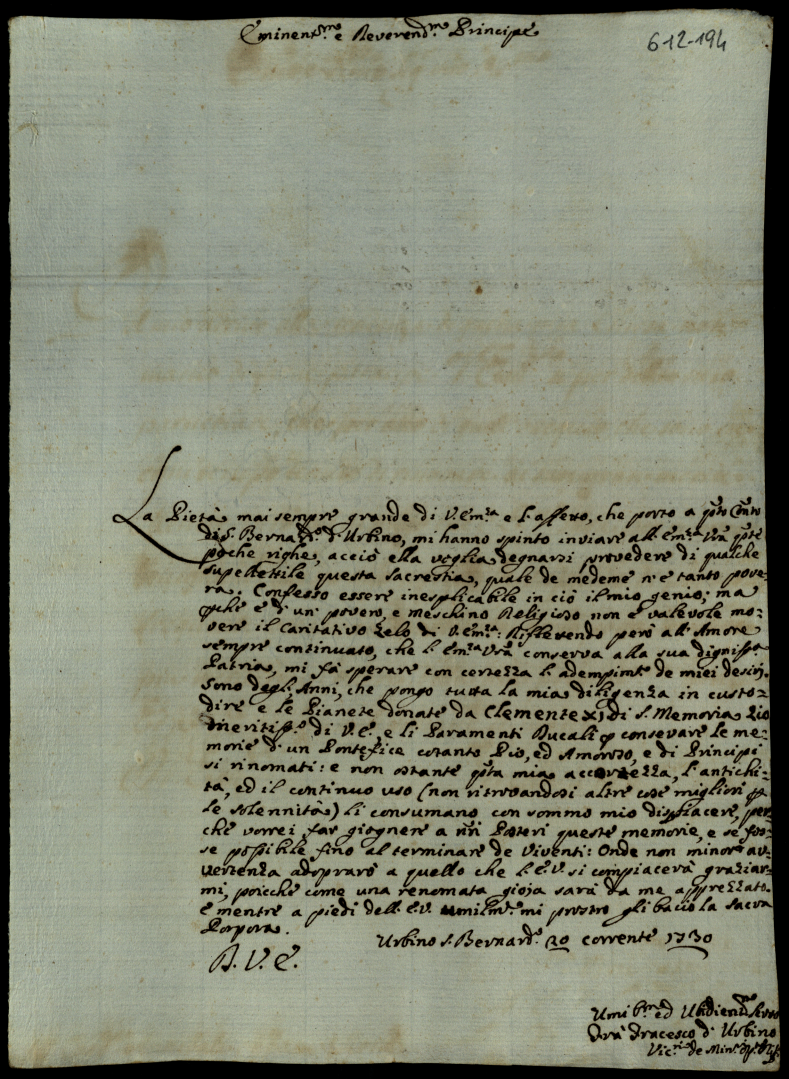 Eminent.mo e Reverend.mo Principe
6-12-194
La Pietà mai sempre grande di V. Em.za e l'affetto, che porto a q̃sto Con̄to
di S. Bernard.o d'Urbino, mi hanno spinto inviare all'Em.za Vr̃a q̃ste
poche righe, acciò ella voglia degnarsi provedere di qualche
supellettile questa sacrestia, quale de medeme n'è tanto pove-
ra. Confesso essere inesplicabile in ciò il mio genio; ma
p̱chè è d'un povero, e meschino Religioso non è valevole mo-
vere il Caritativo Zelo di V. Em.za: Riflettendo però all'Amore
sempre continuato, che l'Em.za Vr̃a conserva alla sua digniss.a
Patria, mi fà sperare con certezza l'adempim.to de miei desirj.
Sono degl'Anni, che pongo tutta la mia diligenza in custo-
dire e le Pianete donate da Clemente XI di S. Memoria Zio
di V.E., e li Paramenti Ducali p̱ consevare le me-
morie d'un Pontefice cotanto Pio, ed Amoroso, e di Principi
si rinomati: e non ostante q̃sta mia accortezza, l'antichi-
tà, ed il continuo uso (non ritrovandosi altre cose migliori p̱
le solennità) li consumano con sommo mio dispiacere, per-
chè vorrei far giognere a n̄ri Posteri queste memorie, e se fos-
se possibile fino al terminare de Viventi: Onde non minore av-
vertenza adoprarò a quello che l'E.V. si compiacerà graziar-
mi, poicchè come una renomata gioja sarà da me apprezzato.
E mentre a piedi dell'E.V. umilm.te mi prostro gli bacio la Sacra
Porpora.
Urbino S. Bernard.o 20 corrente 1730
D. V. E.
Umil.mo ed Ubidien.mo Servo
Frà Fracesco d'Urbino
Vic.rio de Min.